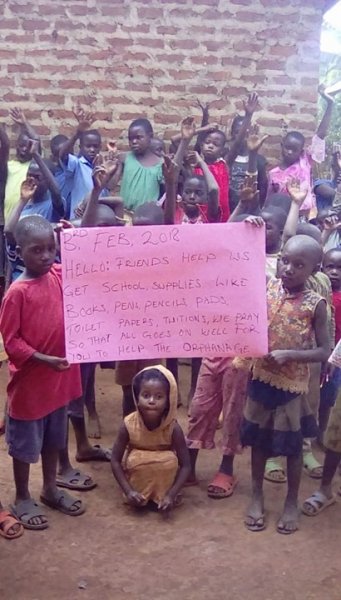 3RD, FEB, 2018
HELLO: FRIENDS HELP US
GET SCHOOL, SUPPLIES, LIKE
BOOKS, PENS, PENCILS, PADS,
TOILET PAPERS, TUITIONS, WE PRAY
SO THAT ALL GOES ON WELL FOR
YOU TO HELP THE ORPHANAGE